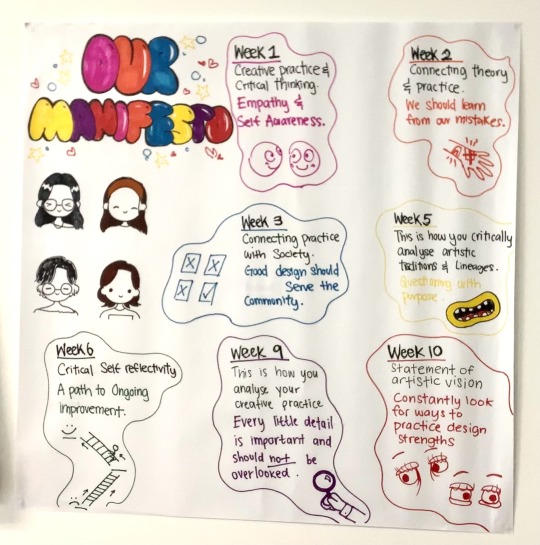 OUR
MANIFESTO
Week 1
Creative practice &
Critical thinking.
Empathy &
Self Awareness.
Week 2
Connecting theory
& practice.
We should learn
from our mistakes.
Week 3
Connecting practice
with Society.
Good design should
Serve the
Community.
Week 5
This is how you critically
analyse artistic
traditions & Lineages.
Questioning with
purpose.
Week 6
Critical Self reflectivity
A path to Ongoing
improvement.
Week 9
This is how you
analyse your
creative practice
Every little detail
is important and
should not be
overlooked.
Week 10
Statement of
artistic vision
Constantly look
for ways to
practice design
strengths